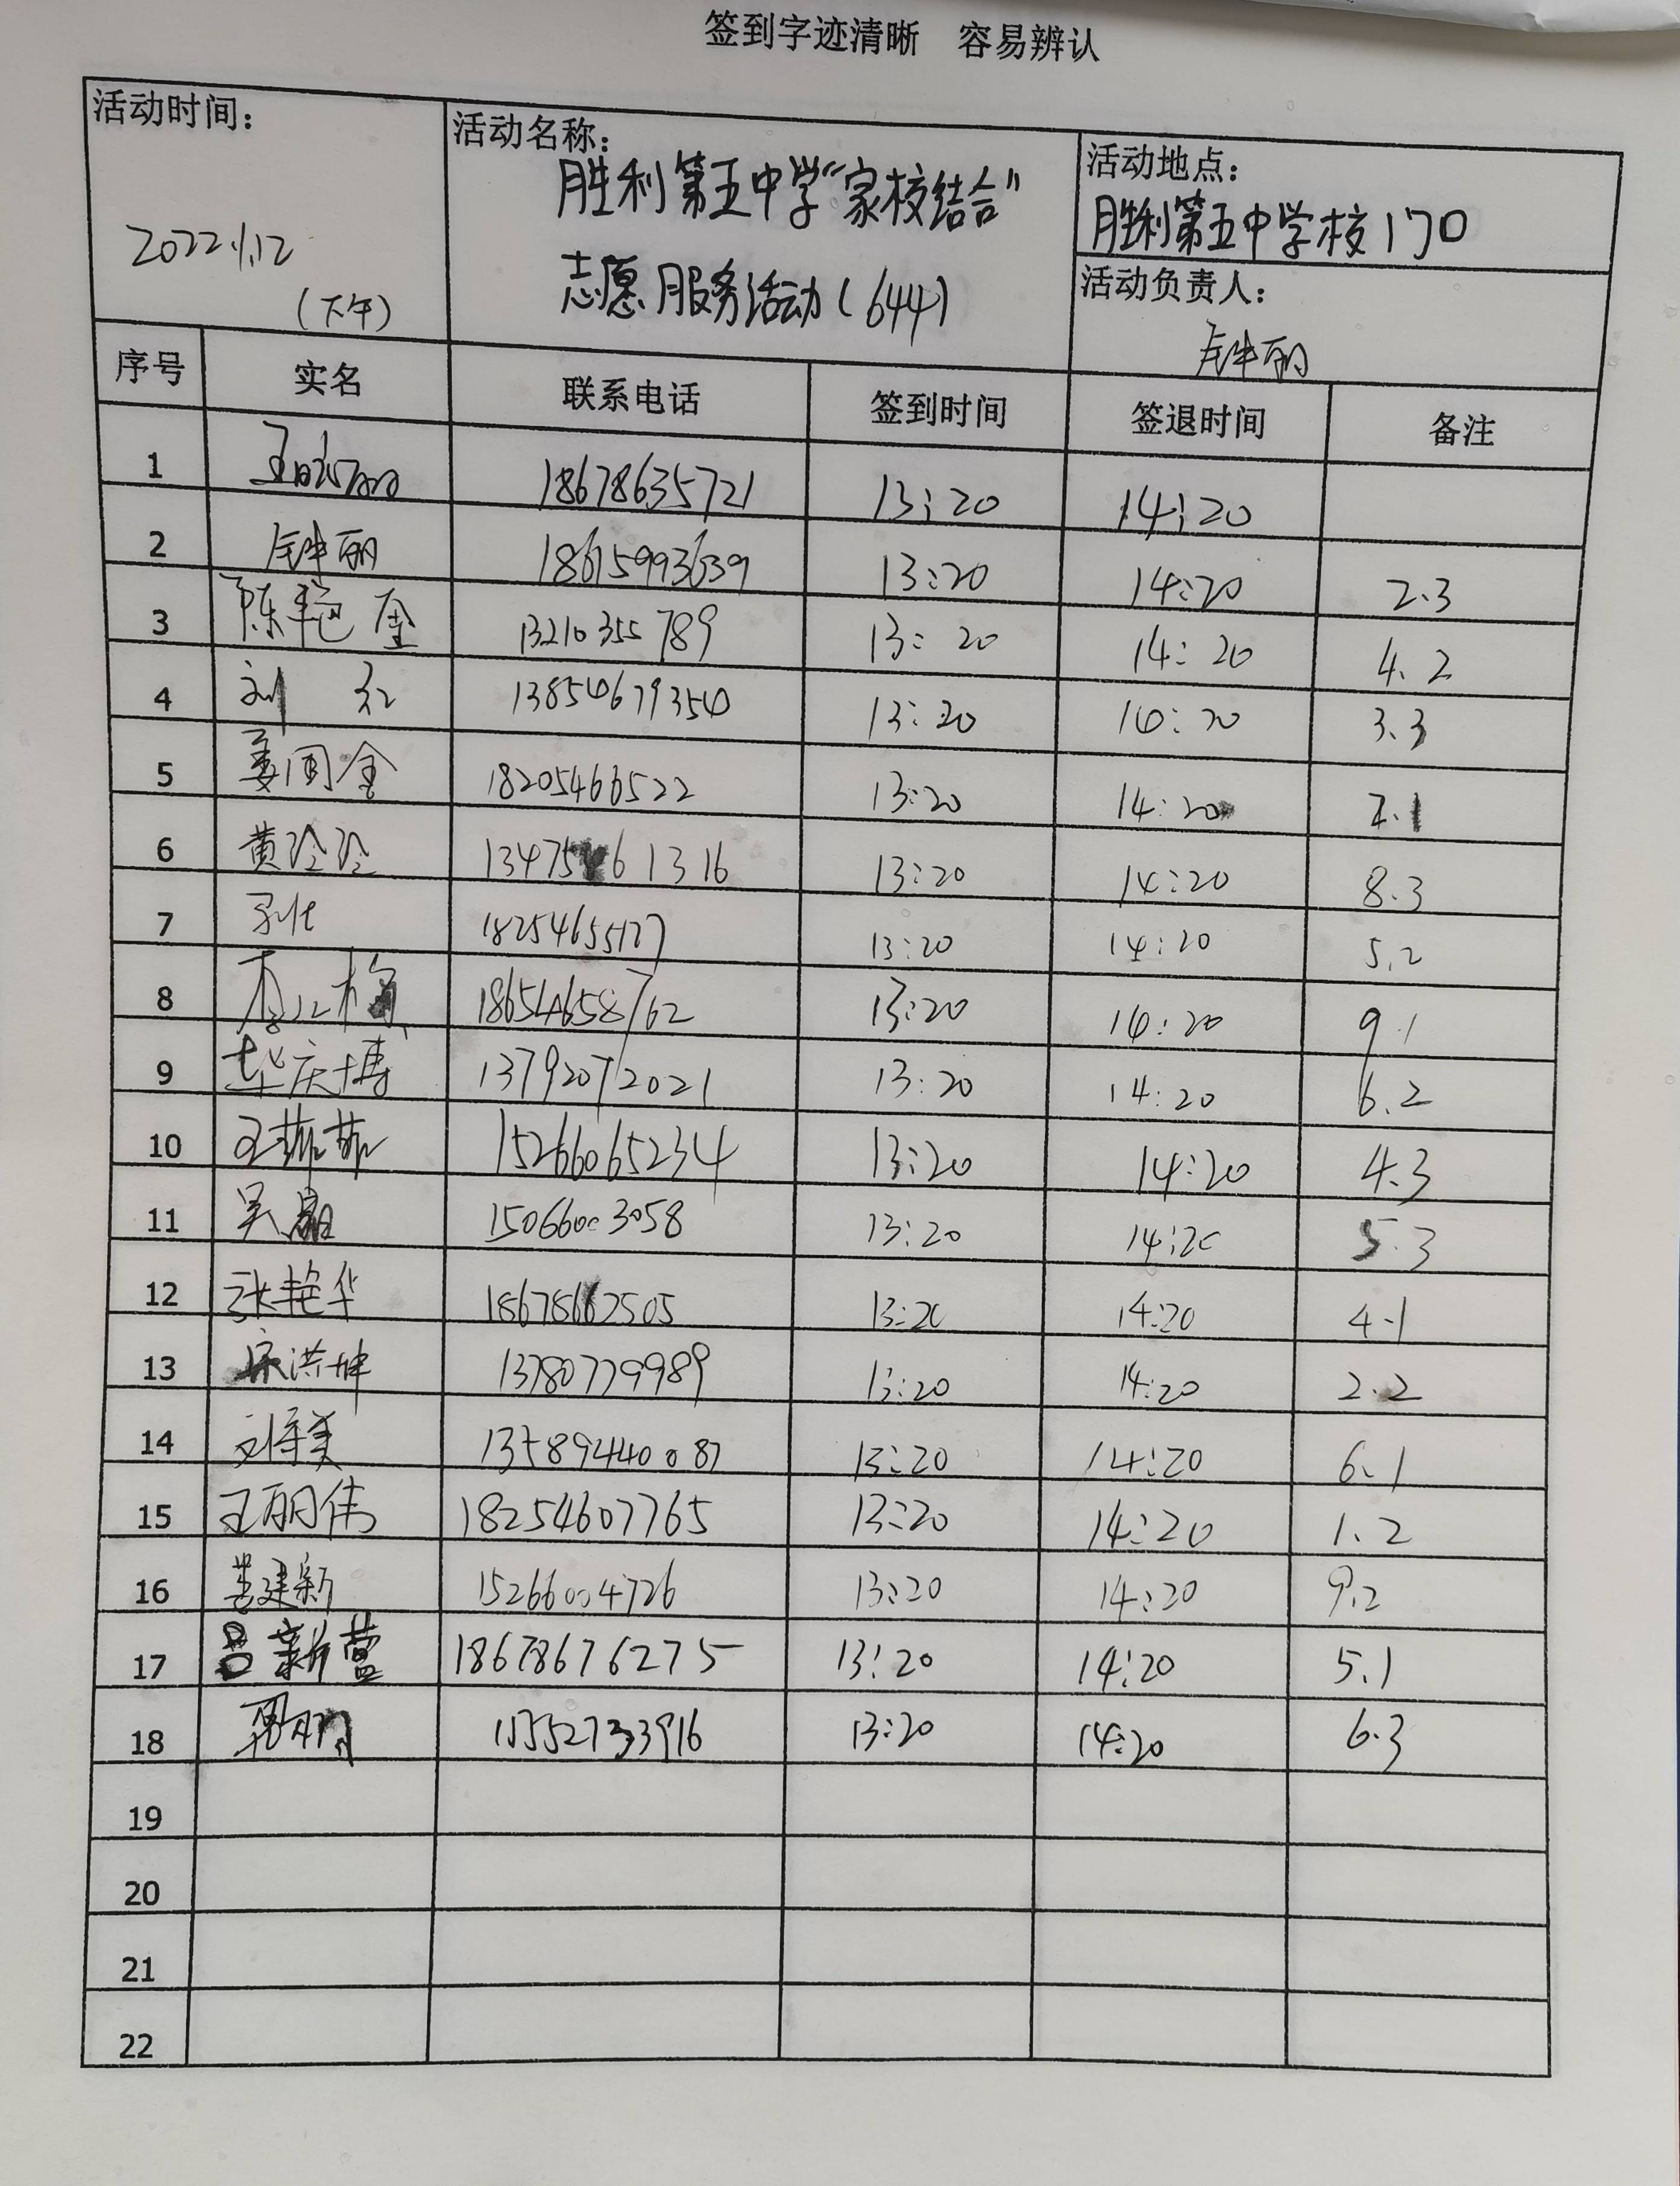 签到字迹清晰 容易辨认
活动时间：
2022.1.12
（下午）
活动名称：
胜利第五中学“家校结合”
志愿服务活动（644）
活动地点：
胜利第五中学校门口
活动负责人：
钟丽
序号 实名 联系电话 签到时间 签退时间 备注
1 18678635721 13:20 14:20
2 钟丽 18615993639 13:20 14:20 2.3
3 陈艳 13210355789 13:20 14:20 4.2
4 刘红 13854679354 13:20 14:20 3.3
5 姜国金 18205466522 13:20 14:20 7.1
6 黄玲玲 13475461316 13:20 14:20 8.3
7 18254655127 13:20 14:20 5.2
8 李红梅 18654658762 13:20 14:20 9.1
9 庆博 13792072021 13:20 14:20 6.2
10 王菲菲 15266065234 13:20 14:20 4.3
11 吴 15066003058 13:20 14:20 5.3
12 张艳华 18678662505 13:20 14:20 4.1
13 宋洪坤 13780779989 13:20 14:20 2.2
14 刘美 13589440087 13:20 14:20 6.1
15 王丽伟 18254607765 13:20 14:20 1.2
16 建新 15266004726 13:20 14:20 9.2
17 吕新营 18678676275 13:20 14:20 5.1
18 13:20 14:20 6.3
19
20
21
22